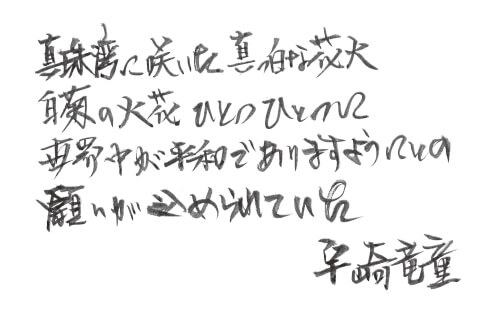 真珠湾に咲いた真白な花火
白菊の火花ひとつひとつに
世界中が平和でありますようにとの
願いが込められていた
宇崎竜童